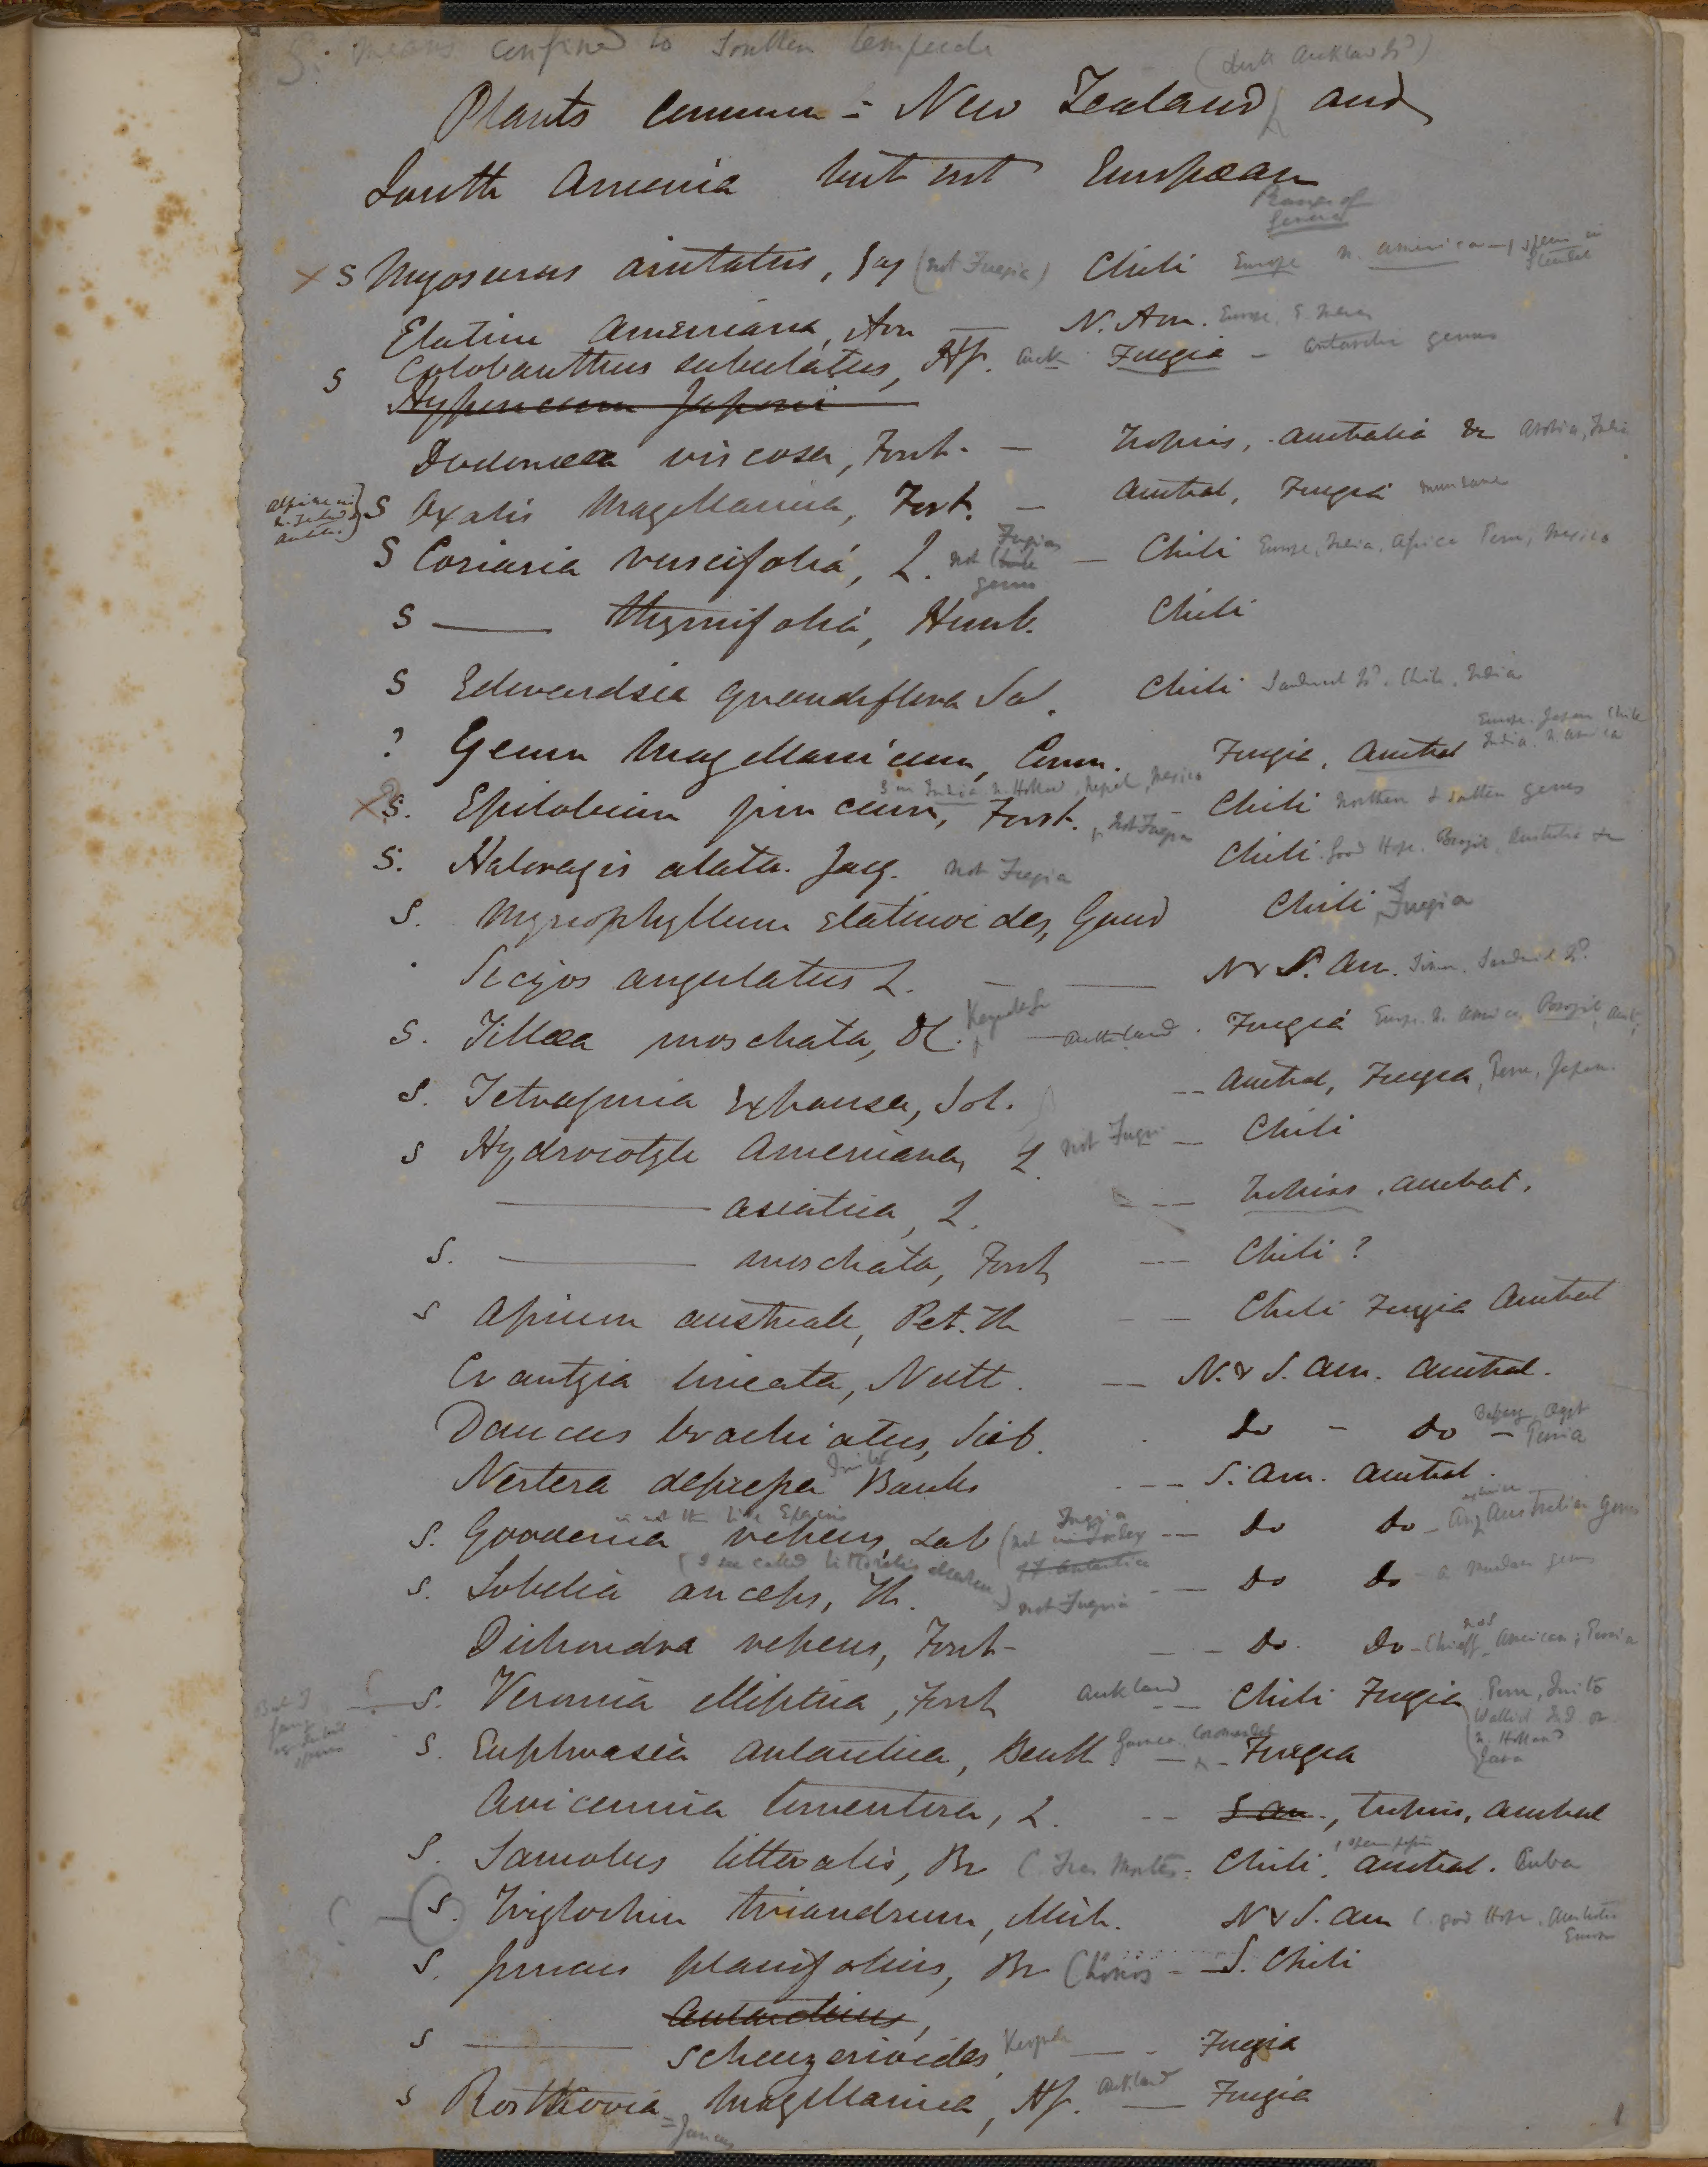 S: means confined to Southern temperate
(Inc Auckland Isd)
Plants common to New Zealand and
South America but not European
Range of
Genera
X S Myosurus aristatus, Gay (not Fuegia) Chili Europe N. America
Elatine Americana, Arn — N. Am. Europe, E. Indies
S Colobanthus subulatus, Hf. Auck Fuegia - Antarctic genus
Hypericum Japoni
Dodonæa viscosa, Forst. — Tropics, Australia &c Arabia, India
Alpine in
N. Zeland &
Austr.
S Oxalis Magellanica, Forst. — Austral, Fuegia mundane
S Coriaria ruscifolia, L. not Fuegian genus — Chili Europe, India, Africa Peru, Mexico
S —— thymifolia, Humb. Chili
S Edwardsia grandiflora Sal. Chili Sandwich Is, Chile, India
? Geum Magellanicum, Comm. Fuegia, Austral Europe. Japan Chile
India. N. America
S in India N. Holland, Nepal, Mexico
X S. Epilobium junceum, Forst. not Fuegia - Chili Northern & Southern genus
S. Haloragis alata. Jacq. not Fuegia Chili. Good Hope. Brazil, Australia &c
S. Myriophyllum elatinoides, Gaud Chili, Fuegia
Sicyos angulatus L. — N & S. Am. Timor, Sandwich Is
S. Tillæa moschata, DC. Kerguelen — Auckland. Fuegia Europ. N. America, Brazil, Aust,
S. Tetragonia expansa, Sol. -- Austral, Fuegia, Peru, Japan.
S Hydrocotyle Americana, L. not Fuegia — Chili
—— asiatica, L. -- Tropics, Austral.
S. —— moschata, Forst --- Chili?
S Apium australe, Pet. Th -- Chili Fuegia Austral
Crantzia lineata, Nutt. -- N. & S. Am. Austral.
Daucus brachiatus, Sieb. Do - Do
Nertera depressa Banks -- S. Am. Austral.
S. Goodenia repens, Lab (not Fuegia -- Do Do - Australian genus
(I see called littoralis elsewhere)
S. Lobelia anceps, Th. not Fuegia -- Do Do - a mundane genus
Dichondra repens, Forst - -- Do. Do - Chiefly American; Persia
S. Veronica elliptica, Forst Auckland -- Chili Fuegia Peru, Quito
N. Holland
Java
S. Euphrasia antarctica, Benth. -- Fuegia
Avicennia tomentosa, L. -- S Am., tropics, Austral
S. Samolus littoralis, Br -- Chili, Austral. Cuba
S. Triglochin triandrum, Mich. N & S. Am C. good Hope, Australia
Europe
S. Juncus planifolius, Br (Chonos -- S. Chili
Antarcticus,
S —— scheuzerioides, Kerguelen — - Fuegia
S Rostkovia Magellanica, Hf. Auckland — Fuegia
= Juncus
1